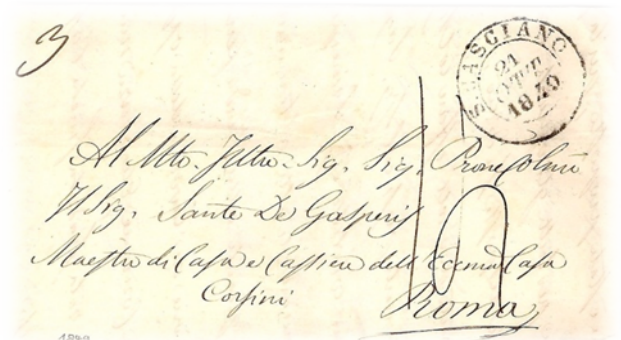 3
S. CASCIANO
21
OTTB
1849
Al Mto. Illtre. Sig. Sig. Prone Colmo
Il Sig. Sante De Gasperis
Maestro di Casa e Cassiere dell' Eccma Casa
Corsini
Roma
1839